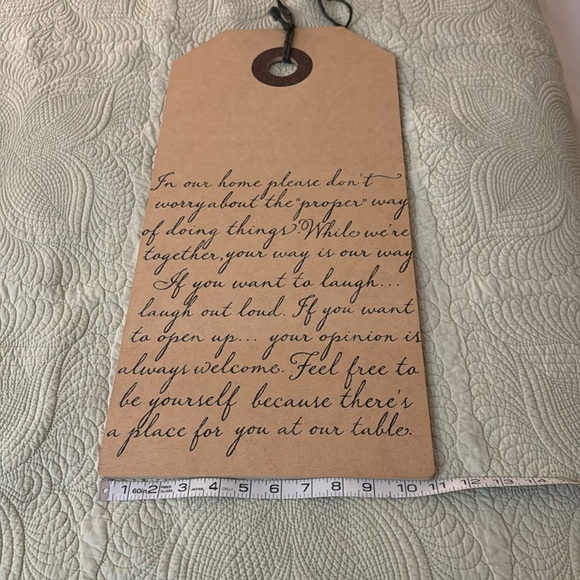 In our home please don't
worry about the "proper" way
of doing things. While we're
together, your way is our way
If you want to laugh...
laugh out loud. If you want
to open up... your opinion is
always welcome. Feel free to
be yourself because there's
a place for you at our table.
1 60in 2 3 JAPAN 4 5 6 7 8 9 10 11 12 13 14